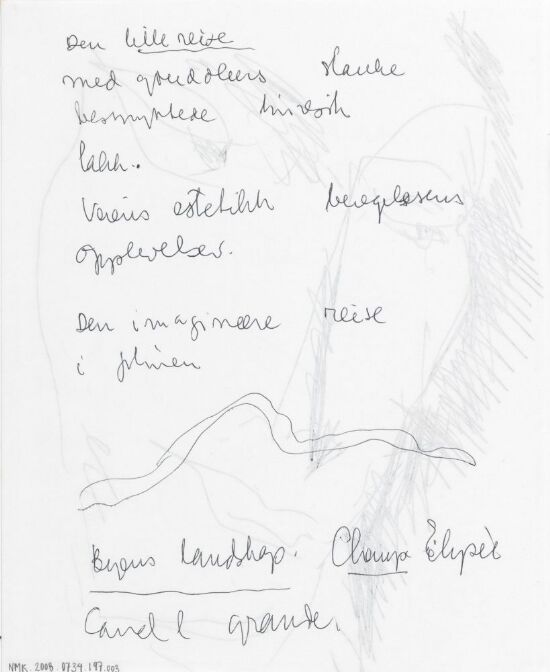 Den lille reise
med gondolens slanke
besmykkede
lakk.
estetikk bevegelsens
opplevelser.
Den imaginære reise
i
Byens landskap. Champ Elysée
Canal grande.
NMK.2008.0734.197.003